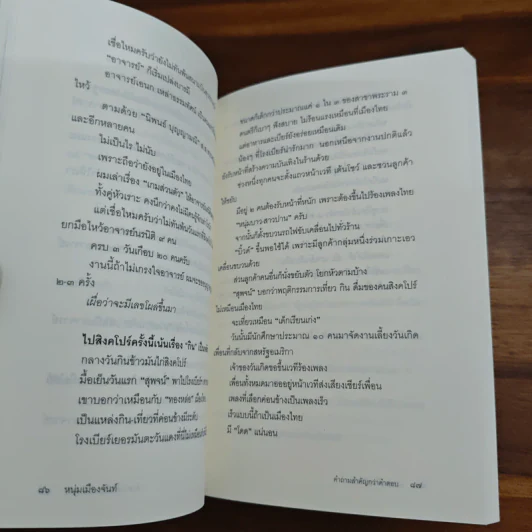 เชื่อไหมครับว่ายังไม่ทันพ้นสนามบิน
"อาจารย์" ก็เริ่มเปล่งบารมี
อาจารย์เอนก เหล่าธรรมทัศน์ เป็น
ไหว้
ตามด้วย "นิพนธ์ บุญญามณี"
และอีกหลายคน
ไม่เป็นไร ไม่นับ
เพราะถือว่ายังอยู่ในเมืองไทย
ผมเล่าเรื่อง "เกมส่วนตัว" ให้อาจารย์
ทั้งคู่หัวเราะ คงนึกว่าคงไม่มีคนรู้จัก
แต่เชื่อไหมครับว่าไม่ทันพ้นวันแรก
ยกมือไหว้อาจารย์นรนิติ ๙ คน
ครบ ๓ วันเกือบ ๒๐ คนครับ
งานนี้ถ้าไม่เกรงใจอาจารย์ ผมจะ
๒-๓ ครั้ง
เผื่อว่าจะมีเลขโผล่ขึ้นมา
ไปสิงคโปร์ครั้งนี้เน้นเรื่อง "กิน" เป็น
กลางวันกินข้าวมันไก่สิงคโปร์
มื้อเย็นวันแรก "สุพจน์" พาไปโรงเบียร์
เขาบอกว่าเหมือนกับ "ทองหล่อ" เมืองไทย
เป็นแหล่งกิน-เที่ยวที่ค่อนข้างมีระดับ
โรงเบียร์เยอรมันตะวันแดงที่นี่ไม่เหมือน
๘๖ หนุ่มเมืองจันท์
ขนาดก็เล็กกว่าประมาณแค่ ๑ ใน ๓ ของสาขาพระราม ๓
ดนตรีก็เบาๆ ฟังสบาย ไม่ร้อนแรงเหมือนที่เมืองไทย
แต่อาหารและเบียร์ยังอร่อยเหมือนเดิม
น้องๆ ที่โรงเบียร์น่ารักมาก นอกเหนือจากงานปกติแล้ว
ยังรับหน้าที่สร้างความบันเทิงในร้านด้วย
ช่วงหนึ่งทุกคนจะตั้งแถวหน้าเวที เต้นโชว์ และชวนลูกค้า
ให้ขยับ
มีอยู่ ๒ คนต้องรับหน้าที่หนัก เพราะต้องขึ้นไปร้องเพลงไทย
"หนุ่มบาว-สาวปาน" ครับ
จากนั้นก็ตั้งขบวนรถไฟขับเคลื่อนไปทั่วร้าน
"บิ๊วต์" ขึ้นพอใช้ได้ เพราะมีลูกค้ากลุ่มหนึ่งร่วมเกาะเอว
เคลื่อนขบวนด้วย
ส่วนลูกค้าคนอื่นก็นั่งขยับตัว โยกหัวตามบ้าง
"สุพจน์" บอกว่าพฤติกรรมการเที่ยว กิน ดื่มของคนสิงคโปร์
ไม่เหมือนเมืองไทย
จะเที่ยวเหมือน "เด็กเรียนเก่ง"
วันนั้นมีนักศึกษาประมาณ ๑๐ คนมาจัดงานเลี้ยงวันเกิด
เพื่อนที่กลับจากสหรัฐอเมริกา
เจ้าของวันเกิดขอขึ้นเวทีร้องเพลง
เพื่อนทั้งหมดมาออยู่หน้าเวทีส่งเสียงเชียร์เพื่อน
เพลงที่เลือกค่อนข้างเป็นเพลงเร็ว
เร็วแบบนี้ถ้าเป็นเมืองไทย
มี "โดด" แน่นอน
คำถามสำคัญกว่าคำตอบ ๘๗